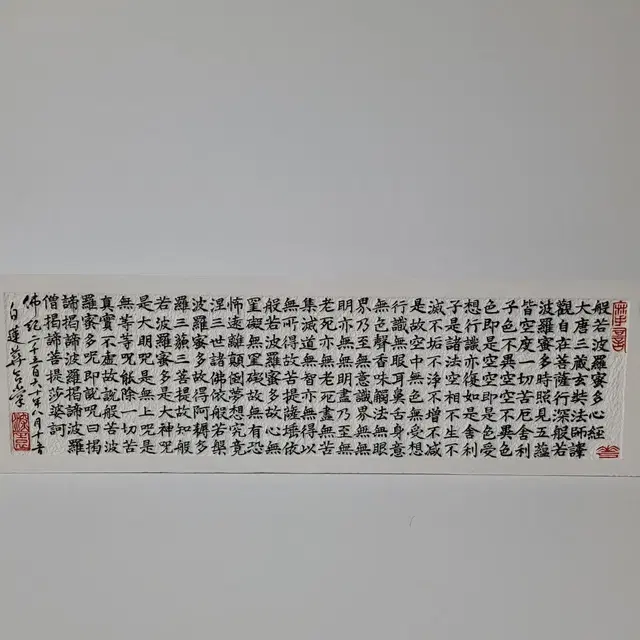 般若波羅蜜多心経
大唐三蔵玄奘法師譯
觀自在菩薩行深般若
波羅蜜多時照見五蘊
皆空度一切苦厄舍利
子色不異空空不異色
色即是空空即是色受
想行識亦復如是舍利
子是諸法空相不生不
滅不垢不淨不增不減
是故空中無色無受想
行識無眼耳鼻舌身意
無色聲香味觸法無眼
界乃至無意識界無無
明亦無無明盡乃至無
老死亦無老死盡無苦
集滅道無智亦無得以
無所得故菩提薩埵依
般若波羅蜜多故心無
罣礙無罣礙故無有恐
怖遠離顛倒夢想究竟
涅三世諸佛依般若槃
波羅蜜多故得阿耨多
羅三藐三菩提故知般
若波羅蜜多是大神呪
是大明呪是無上呪是
無等等呪能除一切苦
真實不虛故說般若波
羅蜜多呪即說呪曰揭
諦揭諦波羅揭諦波羅
僧揭諦菩提莎婆訶
佛紀二千五百六十年八月十
白蓮